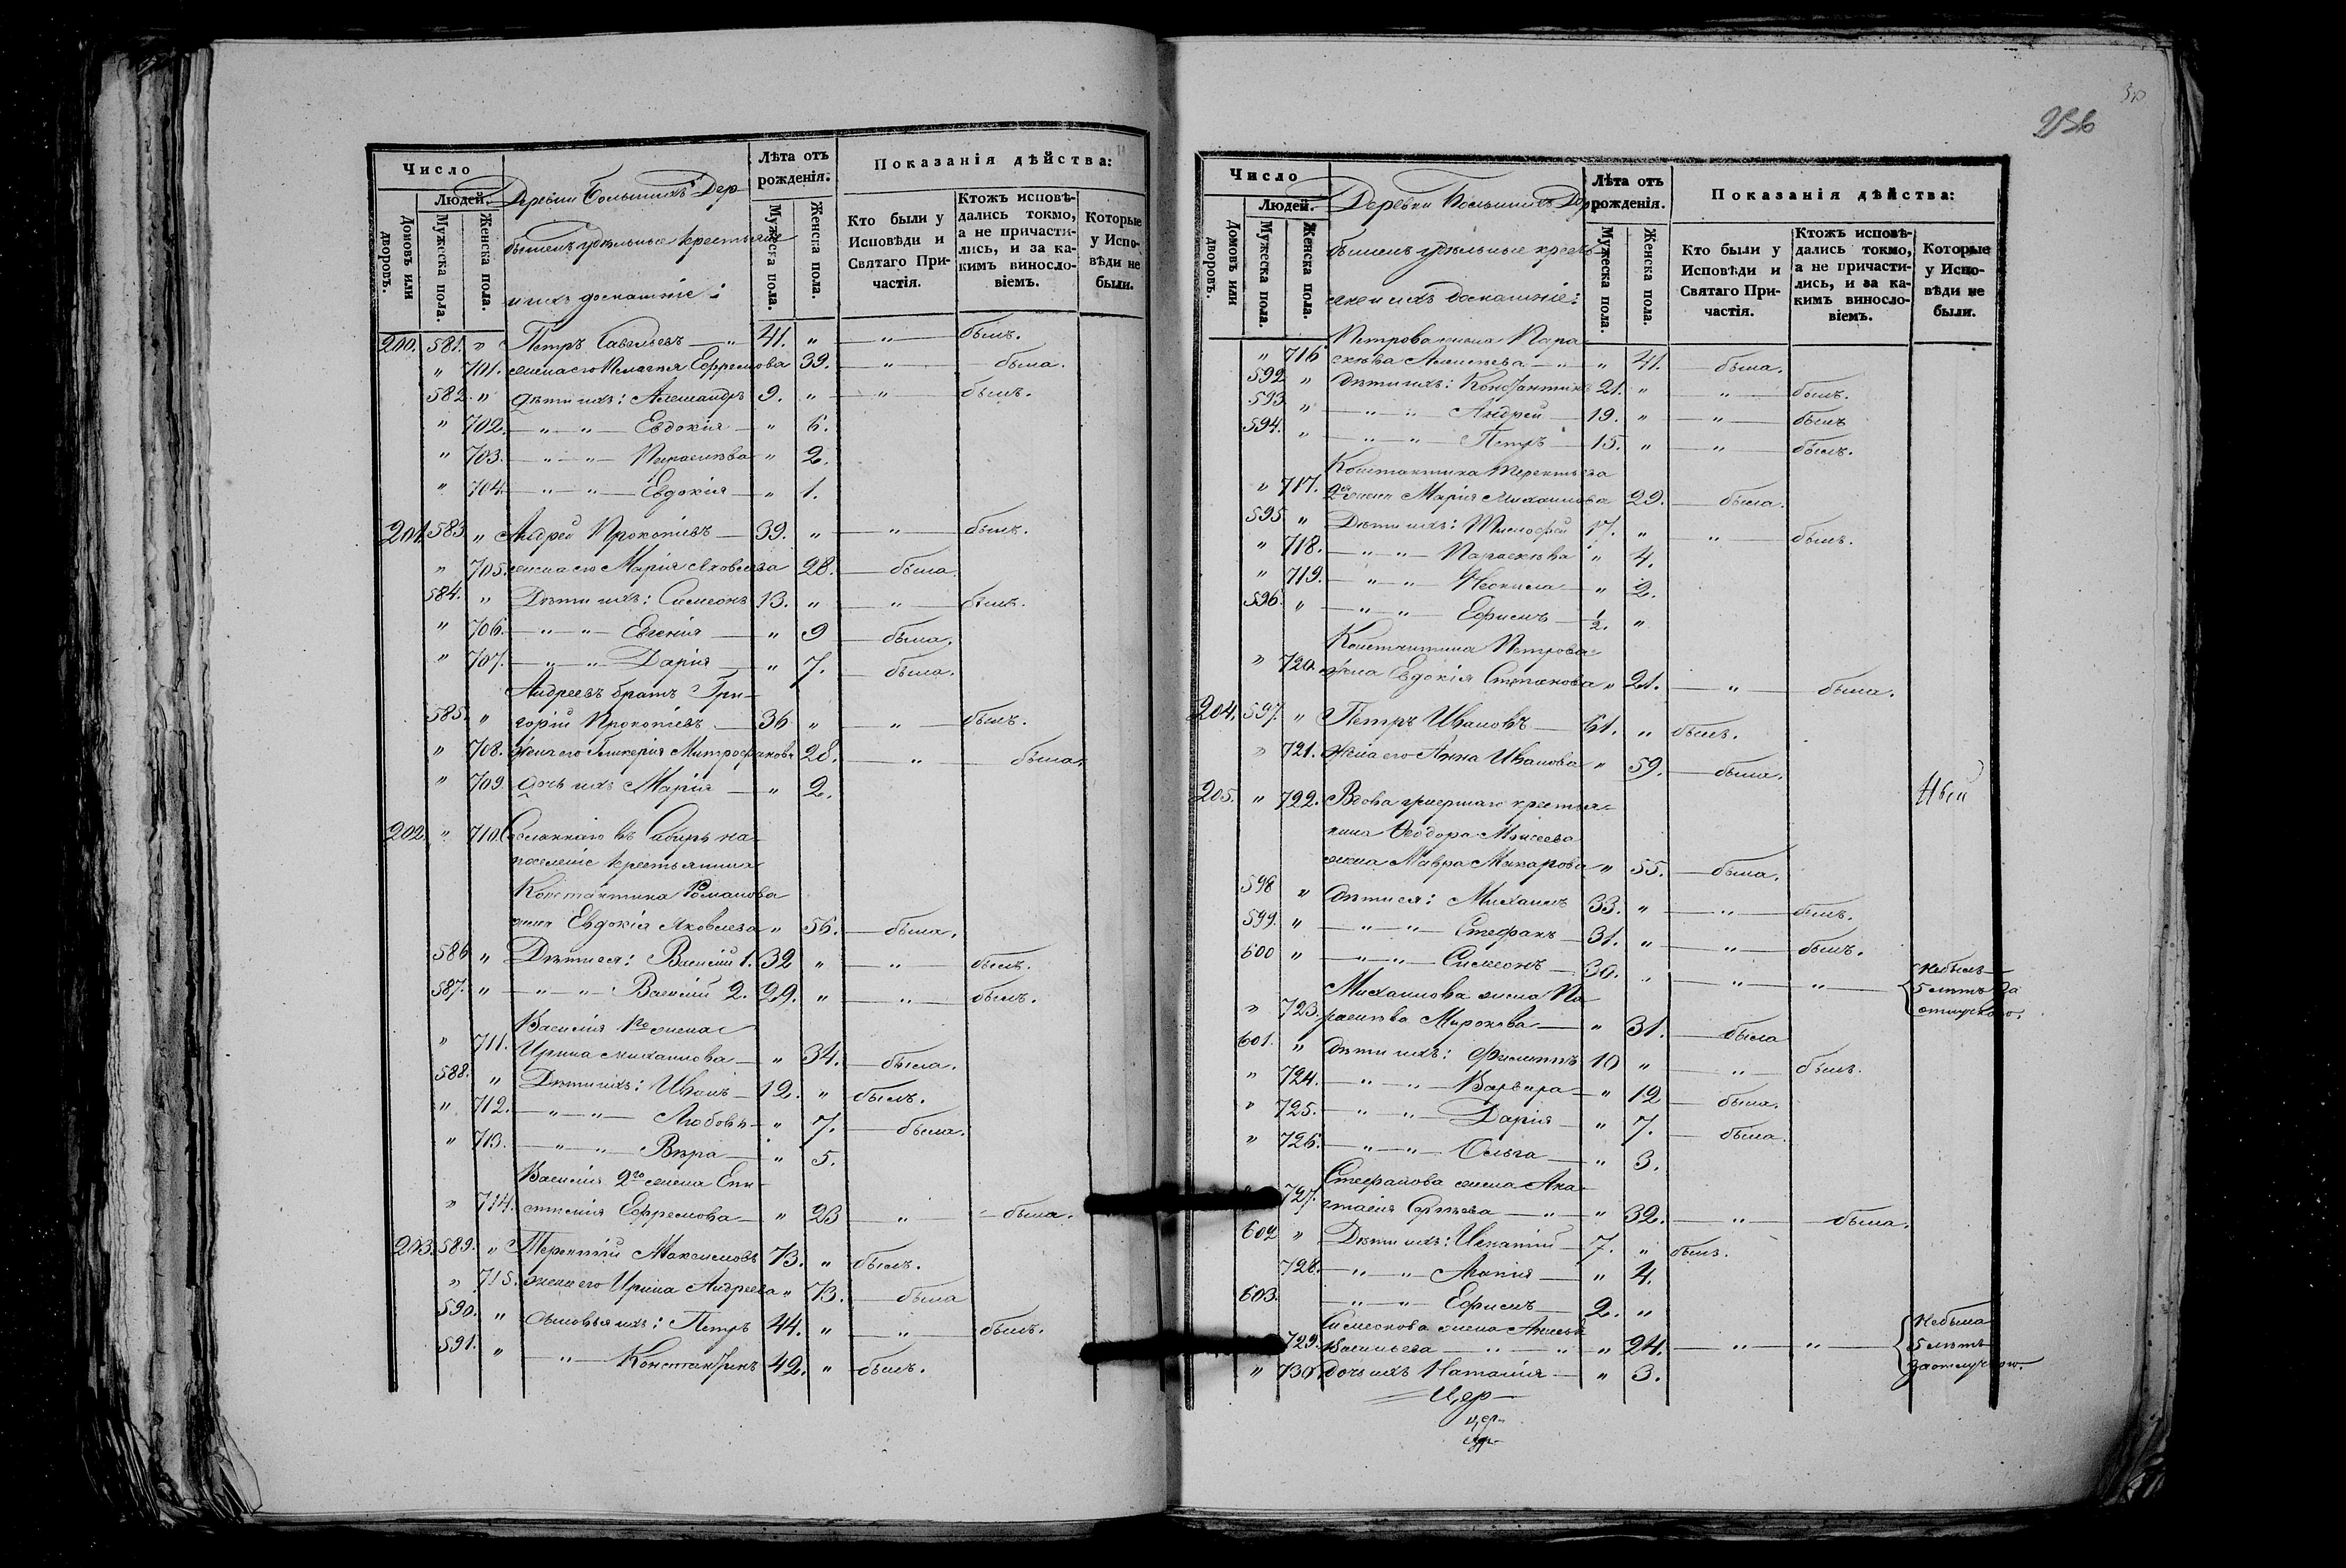 Число
Людей.
Домовъ или дворовъ.
Мужеска пола.
Женска пола.
Деревни Большихъ Дер-
бышекъ удѣльные крестьяне
и ихъ домашніе:
Лѣта отъ рожденія.
Мужеска пола.
Женска пола.
Показанія дѣйства:
Кто были у Исповѣди и Святаго Причастія.
Ктожъ исповѣдались токмо, а не причастились, и за какимъ винословіемъ.
Которые у Исповѣди не были.
200. 581. " Петръ Савельевъ — " 41. " — " — былъ.
" 701. жена его Пелагія Ефремова 39. — " — была.
582. " Дѣти ихъ: Александръ 9. " — " — былъ.
" 702. — " — " — Евдокія — " 6.
" 703. — " — " — Параскева " 2.
" 704. — " — " — Евдокія — " 1.
201. 583. " Андрей Прокопіевъ — 39. " — " — былъ.
" 705. жена его Марія Яковлева 28. — была.
584. " Дѣти ихъ: Симеонъ 13. " — " — былъ.
" 706. — " — " — Евгенія — " 9 — была.
" 707. — " — " — Дарія — " 7. — была.
Андреевъ братъ Гри-
585. " горій Прокопіевъ — 36 " — " — былъ.
" 708. жена его Гликерія Митрофанова 28. — " — была.
" 709. дочь ихъ Марія — " 2.
202. " 710. Сосланнаго въ Сибирь на
поселеніе крестьянина
Константина Романова
жена Евдокія Яковлева " 56. — была.
586 " Дѣти ея: Василій 1. 32 " — " — былъ.
587. " — " — " — Василій 2. 29. " — " — былъ.
Василія 1го жена
" 711. Ирина Михаилова — " 34. — была.
588. " Дѣти ихъ: Иванъ — 12. " былъ.
" 712. — " — " — Любовь — " 7. — была.
" 713. — " — " — Вѣра — " 5.
Василія 2го жена
" 714. Ефремова — " 23 — " — была.
203. 589. " Терентій Максимовъ 73. " былъ.
" 715. жена его Ирина Андреева " 73. — была
590. " Сыновья ихъ: Петръ 44. " — " — былъ.
591. " — " — Константинъ 42. " — былъ.
236
Число
Людей.
Домовъ или дворовъ.
Мужеска пола.
Женска пола.
Деревни Большихъ Дер-
бышекъ удѣльные крестья-
не и ихъ домашніе:
Лѣта отъ рожденія.
Мужеска пола.
Женска пола.
Показанія дѣйства:
Кто были у Исповѣди и Святаго Причастія.
Ктожъ исповѣдались токмо, а не причастились, и за какимъ винословіемъ.
Которые у Исповѣди не были.
Петрова жена Пара-
" 716 скева — " — " 41. — была.
592 " дѣти ихъ: Константинъ 21. " — " — былъ.
593 " — " — " — Андрей — 19. " — " — былъ
594. " — " — " — Петръ — 15. " — " — былъ.
Константина Терентьева
" 717. 2я жена Марія Михаилова 29. — была.
595 " Дѣти ихъ: Тимофей 17. " — " — былъ.
" 718. — " — " — Параскева " 4.
" 719. — " — " — " 2.
596. " — " — " — Ефимъ — 1/2. "
Константина Петрова
" 720. жена Евдокія Степанова " 21. — " — была.
204. 597. " Петръ Ивановъ — 61. " былъ.
" 721. жена его Анна Иванова " 59. — была.
205. " 722. Вдова умершаго крестья-
нина Ѳеодора Моисеева
жена Мавра Макарова " 55. — была.
598 " дѣти ея: Михаилъ 33. " — " — былъ.
599. " — " — " — Стефанъ — 31. " — " — былъ.
600 " — " — " — Симеонъ — 30. " — " — " — Небылъ
5 лѣтъ за
отлучкою.
Михаилова жена Па-
" 723. раскева Миронова — " 31. — была
601. " дѣти ихъ: Филиппъ 10 " — " — былъ.
" 724. — " — " — Варвара — " 12 — была.
" 725. — " — " — Дарія — " 7. — была.
" 726. — " — " — Ольга — " 3.
Стефанова жена Ана-
727. стасія Сергѣева — " — " 32. — " — была.
602 " Дѣти ихъ: Игнатій — 7. " былъ.
728. — " — " — — " 4.
603. — " — " — Ефимъ — 2. "
Симеонова жена
729. Васильева — " — " — " 24. — " — " — Небыла
5 лѣтъ
за отлучкою.
" 730. дочь ихъ Наталія — " 3.